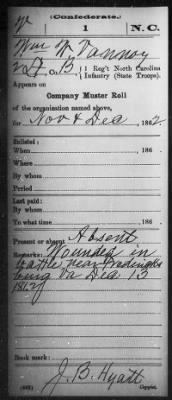 (Confederate.)
V 1 N.C.
Wm W Vannoy
2 Lt, Co. B, 1 Reg't North Carolina
Infantry (State Troops).
Appears on
Company Muster Roll
of the organization named above,
for Nov & Dec, 1862
Enlisted:
When , 186 .
Where
By whom
Period
Last paid:
By whom
To what time , 186 .
Present or absent Absent
Remarks: Wounded in
battle near Fredricks
burg Va Dec 13
1862
Book mark:
J. B. Hyatt
(642) Copyist.